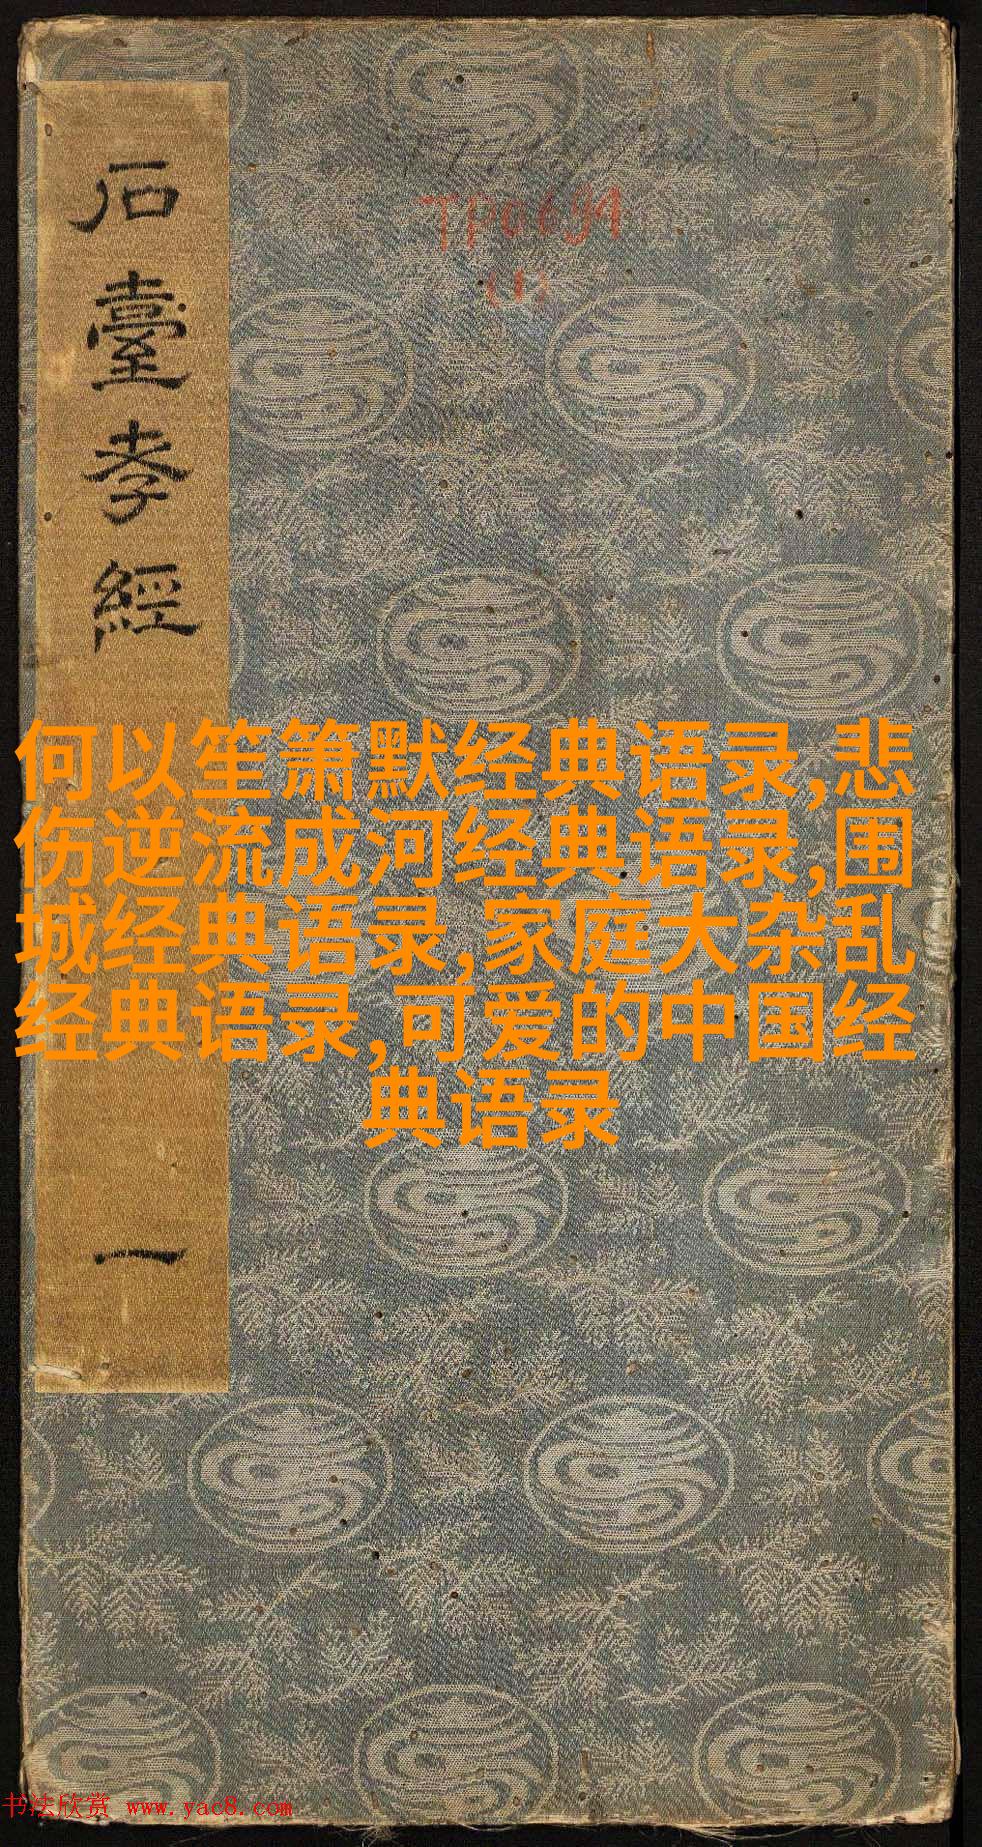 石臺孝經
一
TP0691
(1)
何以笙箫默经典语录,悲
伤逆流成河经典语录,围
城经典语录,家庭大杂乱
经典语录,可爱的中国经
典语录
书法欣赏 www.yac8.com